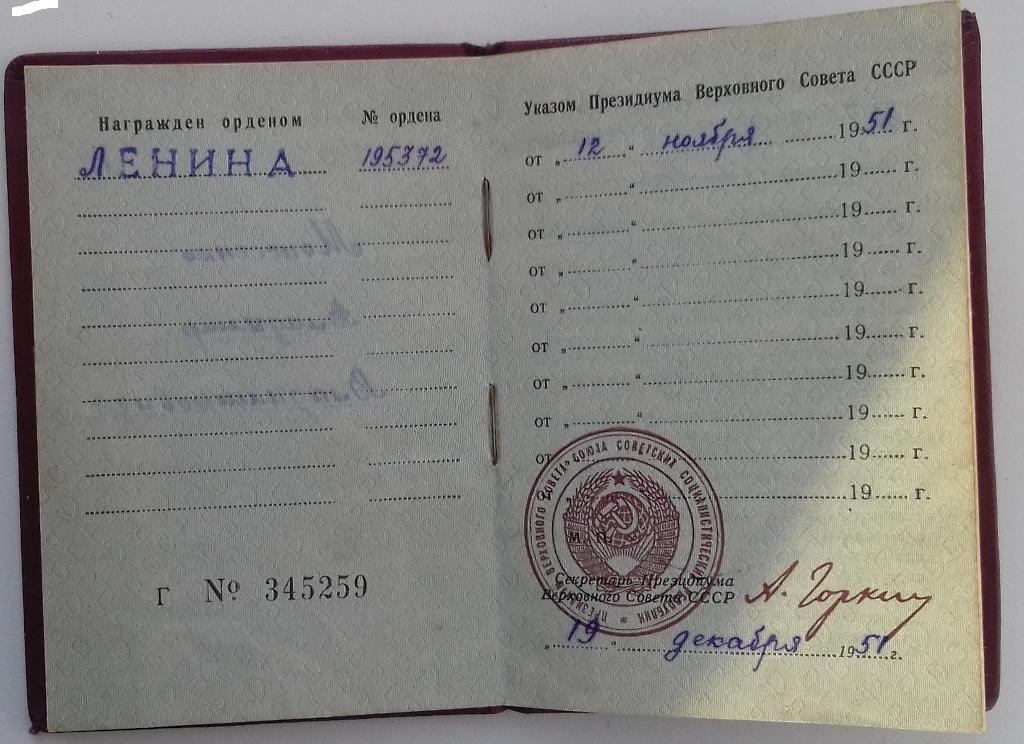 Награжден орденом № ордена
ЛЕНИНА 195372
Г № 345259
Указом Президиума Верховного Совета СССР
от „ 12 “ ноября 1951 г.
от „ “ 19 г.
от „ “ 19 г.
от „ “ 19 г.
от „ “ 19 г.
от „ “ 19 г.
от „ “ 19 г.
от „ “ 19 г.
от „ 19 г.
19 г.
ВЕРХОВНОГО СОВЕТА СОЮЗА СОВЕТСКИХ СОЦИАЛИСТИЧЕСКИХ
М. П.
Секретарь Президиума
Верховного Совета СССР А. Горкин
„ 19 “ декабря 1951 г.